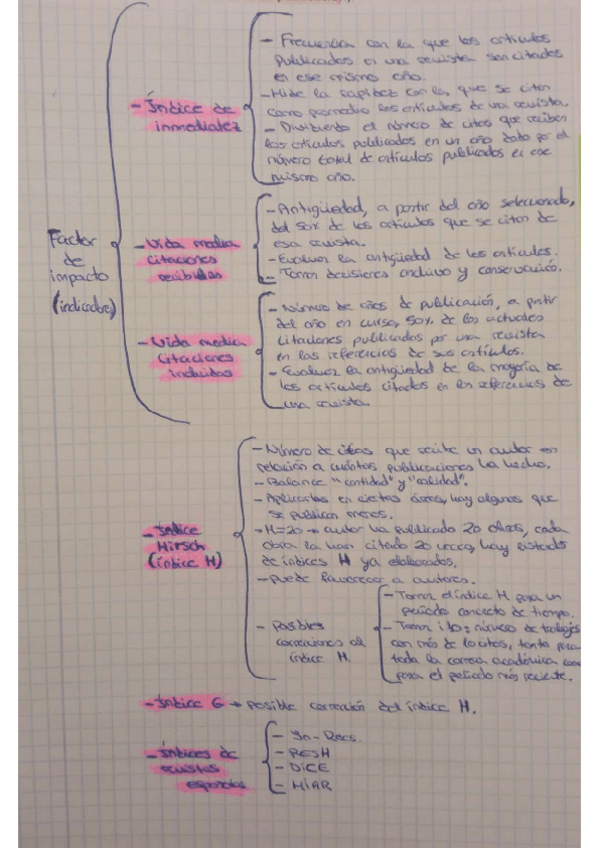 - Índice de
inmediatez
- Frecuencia con la que los artículos
publicados en una revista son citados
en ese mismo año.
- Mide la rapidez con la que se citan
como promedio los artículos de una revista.
- Dividiendo el número de citas que reciben
los artículos publicados en un año dado por el
número total de artículos publicados en ese
mismo año.
Factor
de
impacto
(indicadores)
- Vida media
citaciones
recibidas
- Antigüedad, a partir del año seleccionado,
del 50% de los artículos que se citan de
esa revista.
- Evaluar la antigüedad de los artículos.
- Tomar decisiones archivo y conservación.
- Vida media
citaciones
incluidas
- Número de años de publicación, a partir
del año en curso, 50% de las actuales
citaciones publicados por una revista
en las referencias de sus artículos.
- Evaluar la antigüedad de la mayoría de
los artículos citados en las referencias de
una revista.
- Índice
Hirsch
(índice H)
- Número de citas que recibe un autor en
relación a cuántas publicaciones ha hecho.
- Balance "cantidad" y "calidad".
- Aplicarlas en ciertas áreas, hay algunos que
se publican menos.
- H=20 → autor ha publicado 20 obras, cada
obra la han citado 20 veces, hay listados
de índices H ya elaborados.
- Puede favorecer a autores.
- Posibles
correcciones al
índice H.
- Tomar el índice H para un
periodo concreto de tiempo.
- Tomar i10: número de trabajos
con más de 10 citas, tanto para
toda la carrera académica como
para el periodo más reciente.
- Índice G → posible corrección del índice H.
- Índices de
revistas
españolas
- In-Recs.
- RESH
- DICE
- MIAR